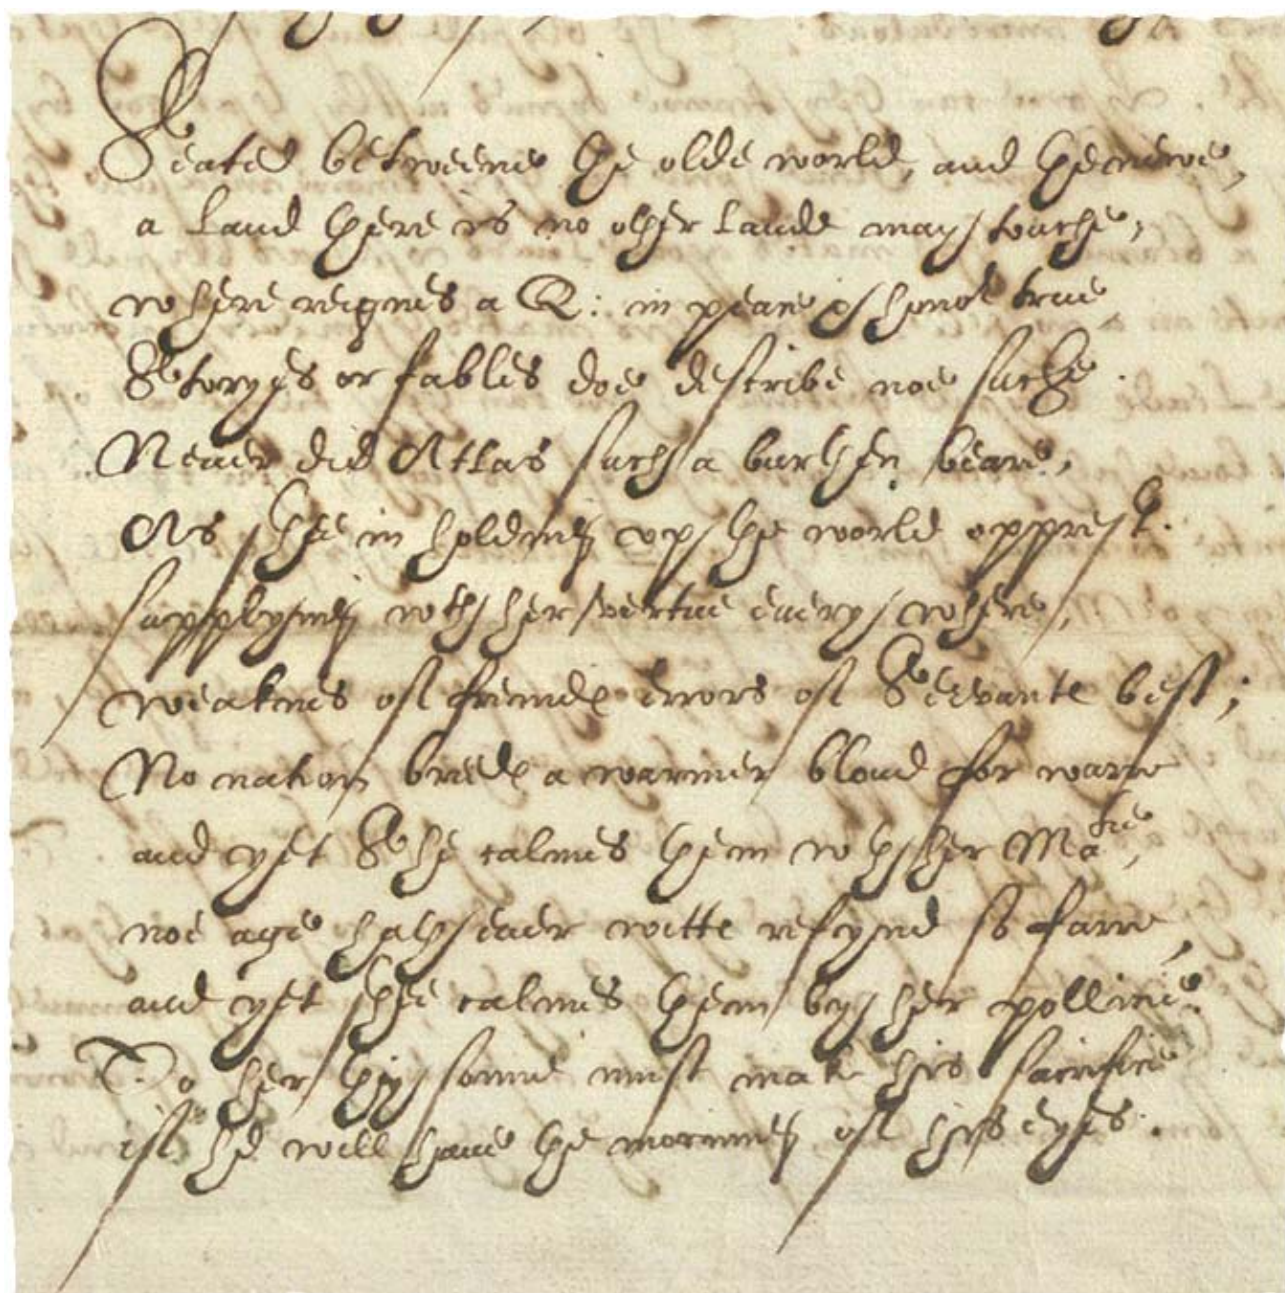 Seated betweene the olde world, and the newe,
a land there is no other lande may touche,
where reignes a Q: in peace & honor true
Storyes or fables doe describe noe suche.
Never did Atlas such a burthen beare,
As shee in holding vp the world opprest.
supplying wth her vertue every where,
weaknes of frends errors of Servants best;
No nation breeds a warmer bloud for warre
and yet She calmes them wth her Matie,
noe age hath ever witte refynd so farre,
and yet shee calmes them by her pollicie.
To her thy sonne must make his sacrifice
if he will have the morning of his eyes.